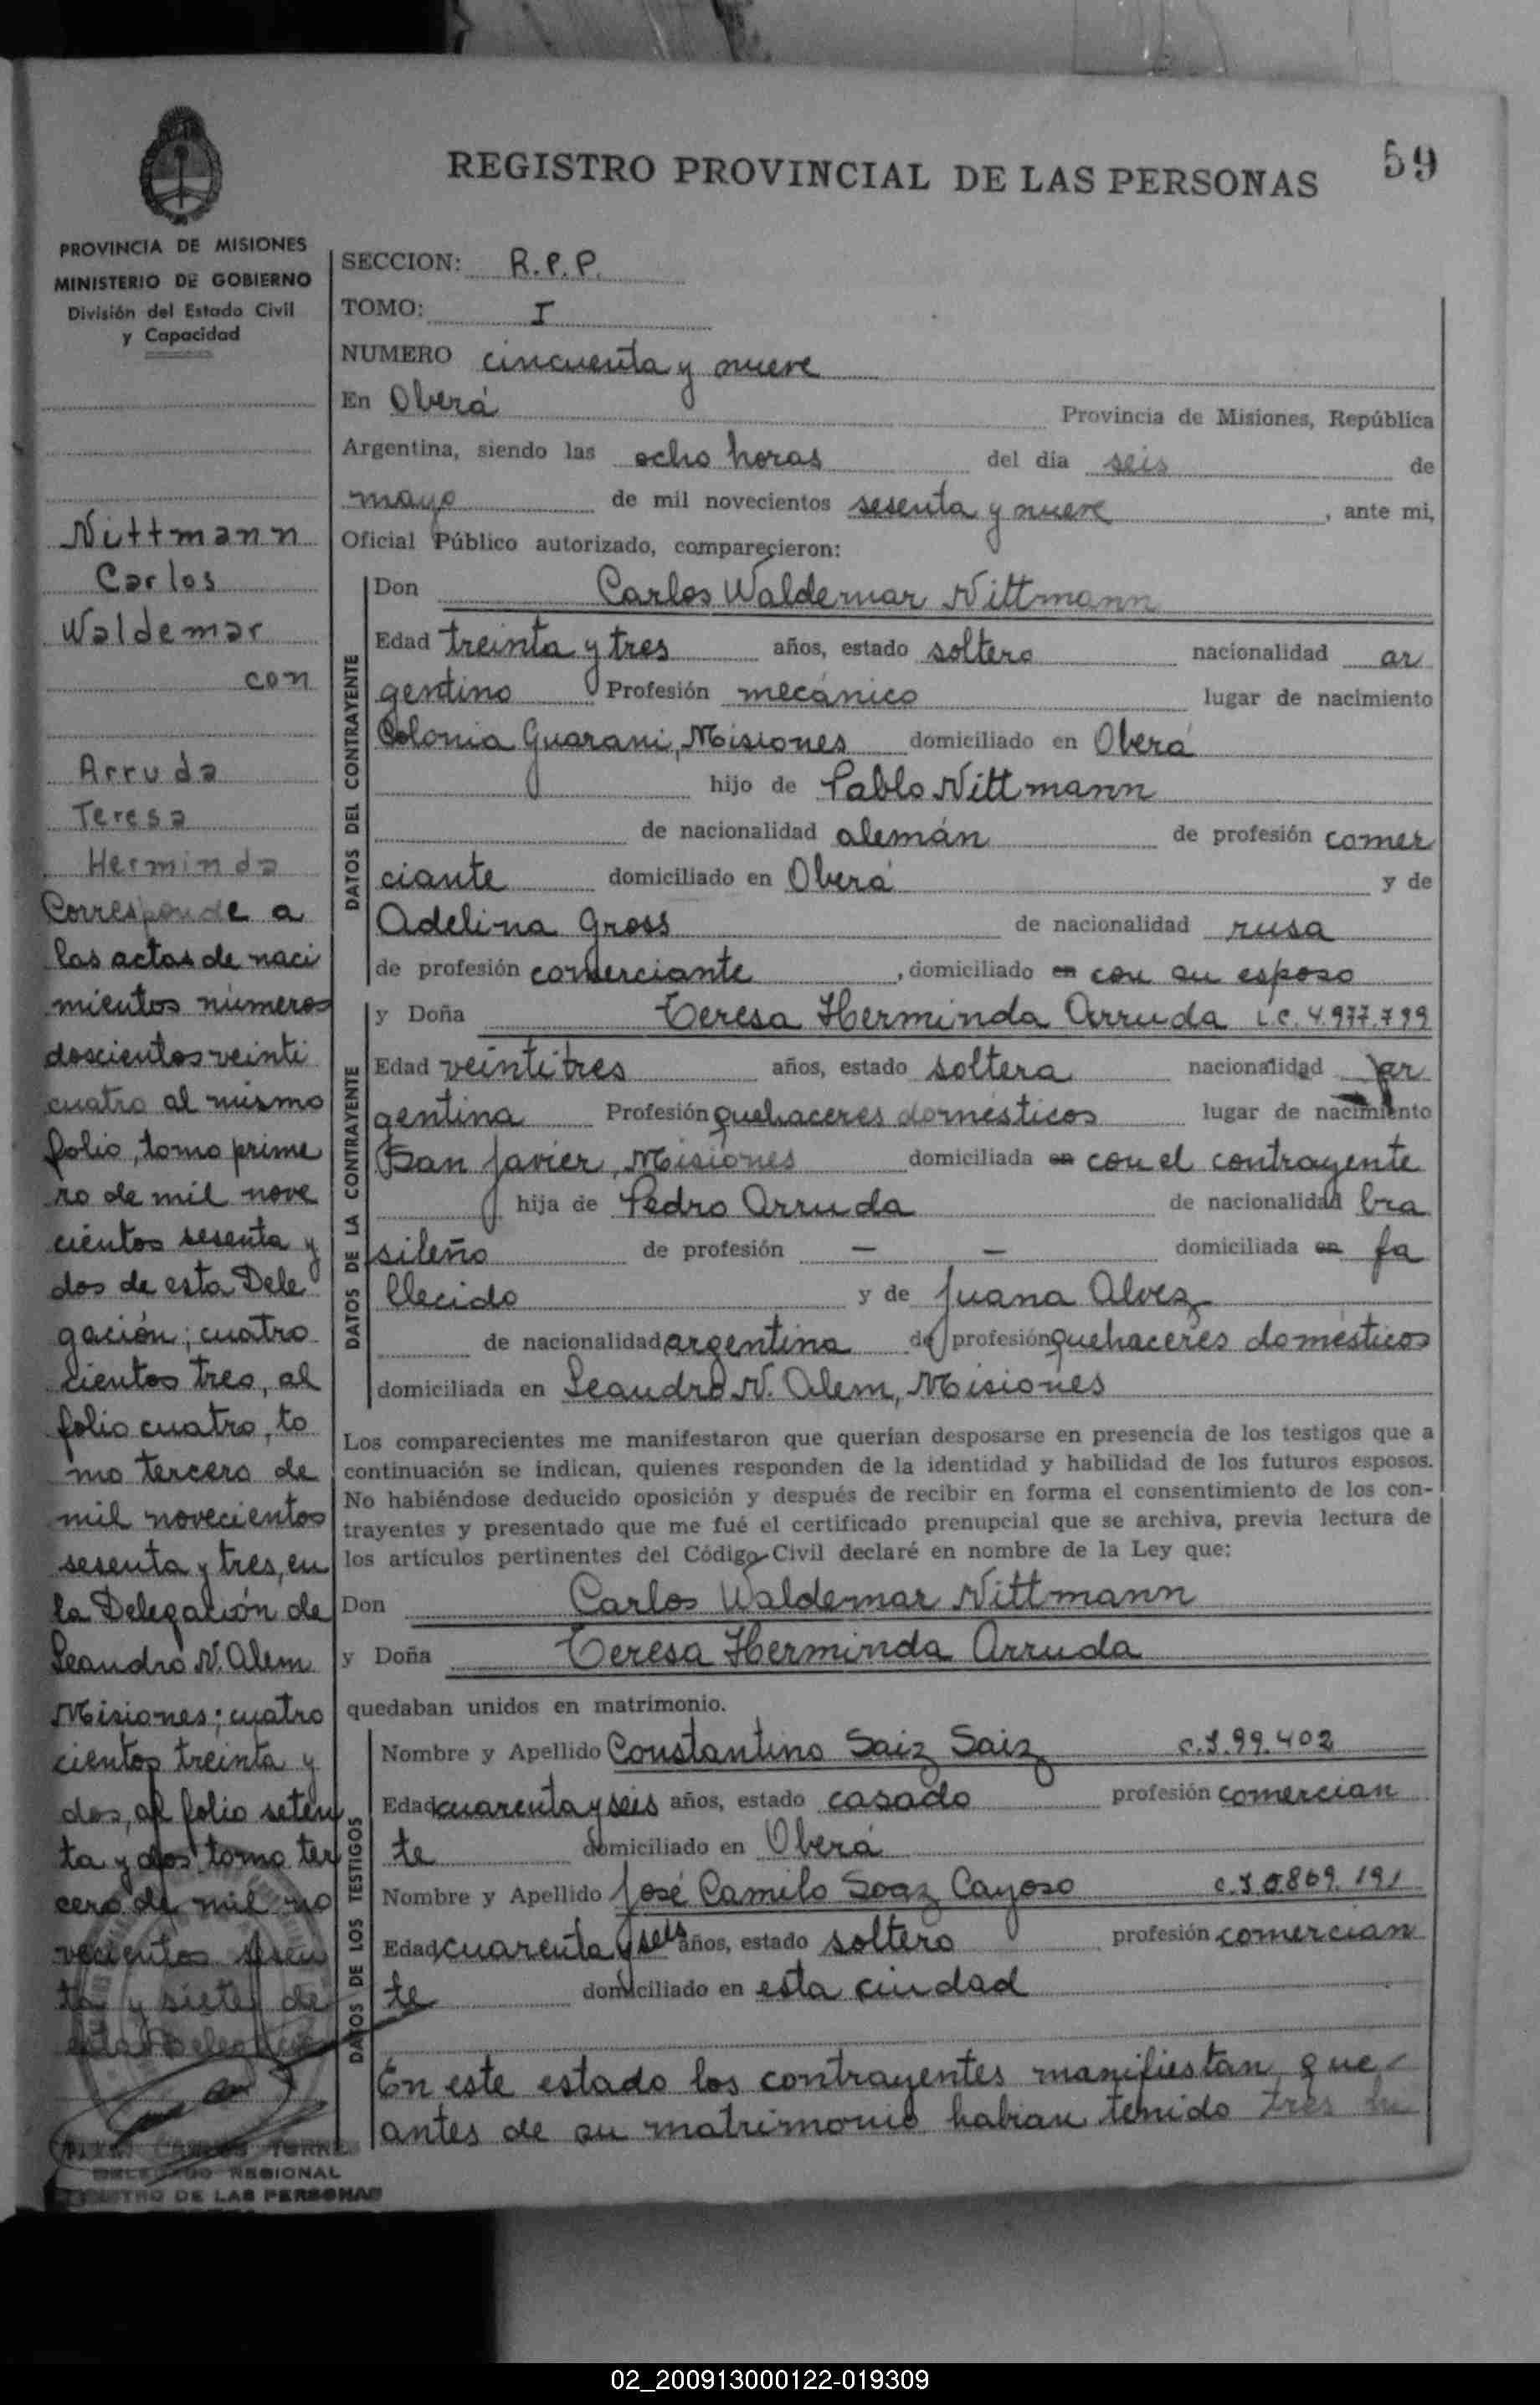 REGISTRO PROVINCIAL DE LAS PERSONAS
59
PROVINCIA DE MISIONES
MINISTERIO DE GOBIERNO
División del Estado Civil
y Capacidad
Nittmann
Carlos
Waldemar
con
Arruda
Teresa
Herminda
Corresponde a
las actas de naci
mientos números
doscientos veinti
cuatro al mismo
folio, tomo prime
ro de mil nove
cientos sesenta y
dos de esta Dele
gación; cuatro
cientos tres, al
folio cuatro, to
mo tercero de
mil novecientos
sesenta y tres, en
la Delegación de
Leandro N. Alem
Misiones; cuatro
cientos treinta y
dos, al folio seten
ta y dos tomo ter
cero de mil no
vecientos sesen
ta y siete, de
esta Delegación
DELEGADO REGIONAL
REGISTRO DE LAS PERSONAS
SECCION: R.P.P.
TOMO: I
NUMERO cincuenta y nueve
En Oberá Provincia de Misiones, República
Argentina, siendo las ocho horas del dia seis de
mayo de mil novecientos sesenta y nueve, ante mi,
Oficial Público autorizado, comparecieron:
DATOS DEL CONTRAYENTE
Don Carlos Waldemar Nittmann
Edad treinta y tres años, estado soltero nacionalidad ar
gentino Profesión mecánico lugar de nacimiento
Colonia Guarani, Misiones domiciliado en Oberá
hijo de Pablo Nittmann
de nacionalidad alemán de profesión comer
ciante domiciliado en Oberá y de
Adelina Gross de nacionalidad rusa
de profesión comerciante, domiciliado en con su esposo
DATOS DE LA CONTRAYENTE
y Doña Teresa Herminda Arruda L.C. 4.977.799
Edad veintitres años, estado soltera nacionalidad ar
gentina Profesión quehaceres domésticos lugar de nacimiento
San Javier, Misiones domiciliada en con el contrayente
hija de Pedro Arruda de nacionalidad bra
sileño de profesión — — domiciliada en fa
llecido y de Juana Alvez
de nacionalidad argentina de profesión quehaceres domésticos
domiciliada en Leandro N. Alem, Misiones
Los comparecientes me manifestaron que querían desposarse en presencia de los testigos que a
continuación se indican, quienes responden de la identidad y habilidad de los futuros esposos.
No habiéndose deducido oposición y después de recibir en forma el consentimiento de los con-
trayentes y presentado que me fué el certificado prenupcial que se archiva, previa lectura de
los artículos pertinentes del Código Civil declaré en nombre de la Ley que:
Don Carlos Waldemar Nittmann
y Doña Teresa Herminda Arruda
quedaban unidos en matrimonio.
DATOS DE LOS TESTIGOS
Nombre y Apellido Constantino Saiz Saiz C.I. 99.402
Edad cuarenta y seis años, estado casado profesión comercian
te domiciliado en Oberá
Nombre y Apellido José Camilo Soaz Cayoso
Edad cuarenta y seis años, estado soltero profesión comercian
te domiciliado en esta ciudad
En este estado los contrayentes manifiestan que
antes de su matrimonio habian tenido tres hi
02_200913000122-019309